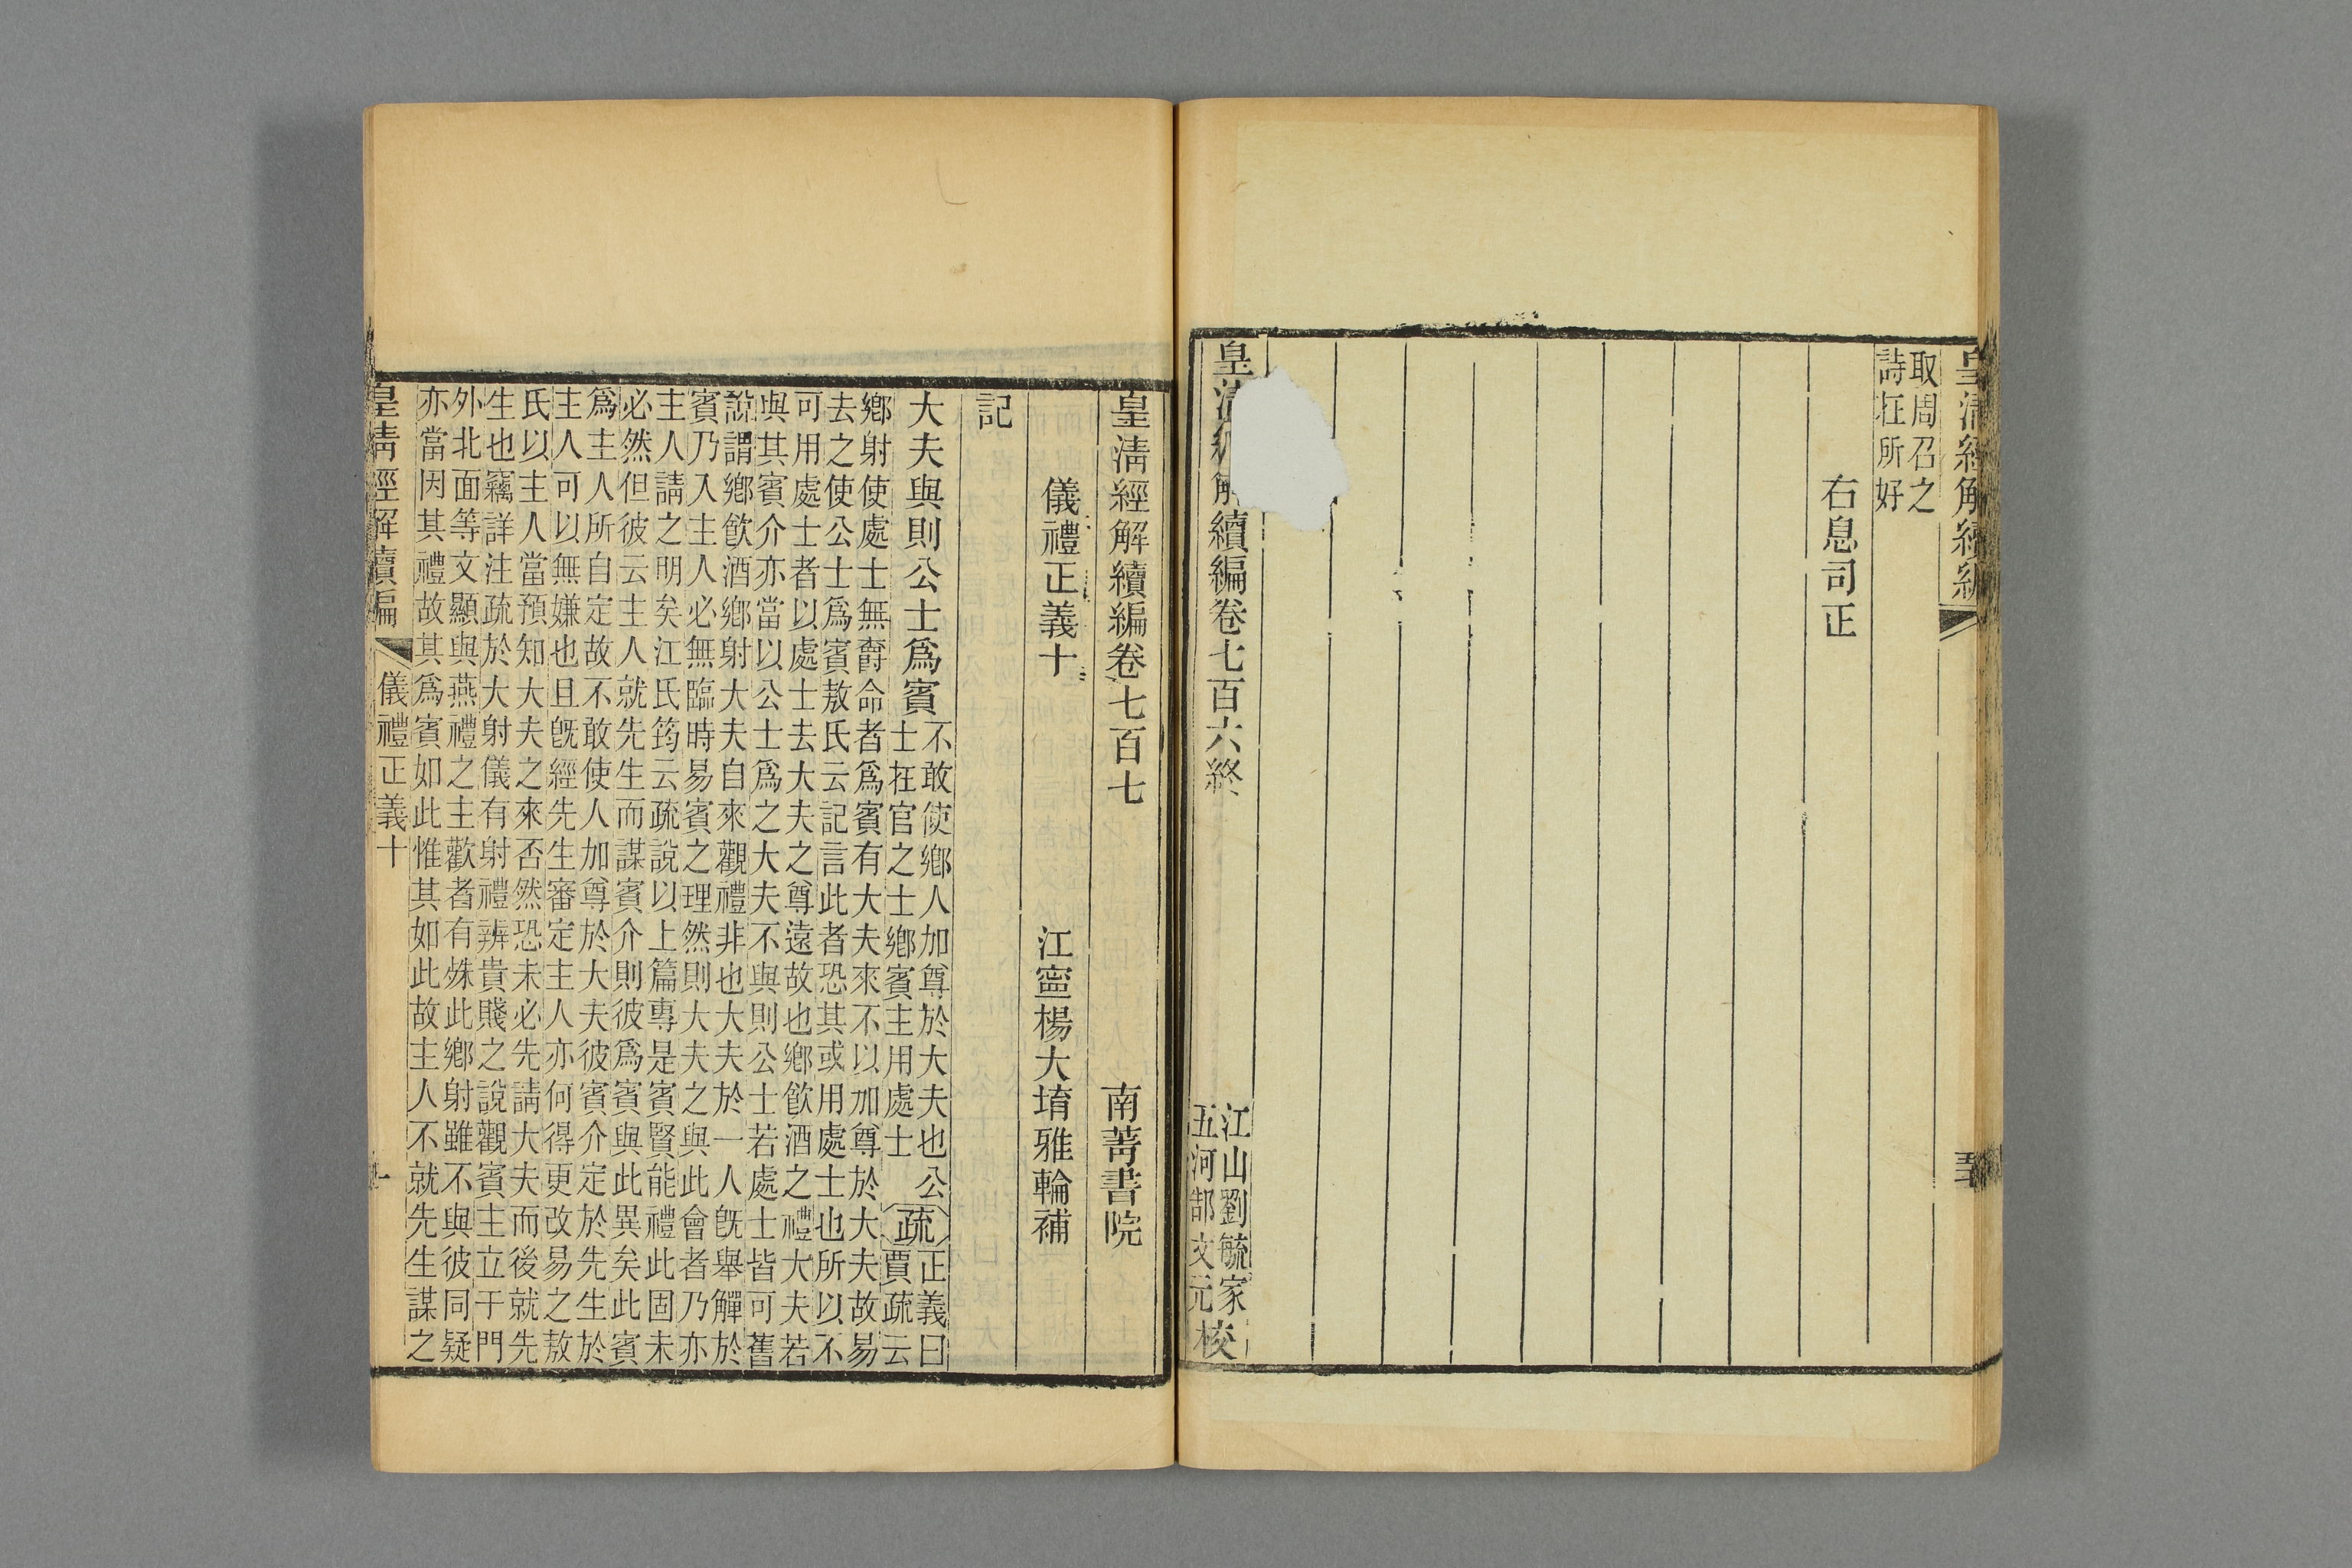 皇清經解續編
取周召之
詩在所好
右息司正
皇清
解續編卷七百六終
江山劉毓家
五河郜文元
校
皇清經解續編卷七百七
南菁書院
儀禮正義十
江寧楊大堉雅輪補
記
大夫與則公士爲賓
不敢使鄉人加尊於大夫也公
士在官之士鄉賓主用處士
疏
正義曰
賈疏云
鄉射使處士無爵命者爲賓有大夫來不以加尊於大夫故易
去之使公士爲賓敖氏云記言此者恐其或用處士也所以不
可用處士者以處士去大夫之尊遠故也鄉飲酒之禮大夫若
與其賓介亦當以公士爲之大夫不與則公士若處士皆可舊
說謂鄉飲酒鄉射大夫自來觀禮非也大夫於一人旣舉觶於
賓乃入主人必無臨時易賓之理然則大夫之與此會者乃亦
主人請之明矣江氏筠云疏說以上篇專是賓賢能禮此固未
必然但彼云主人就先生而謀賓介則彼爲賓與此異矣此賓
爲主人所自定故不敢使人加尊於大夫彼賓介定於先生於
主人可以無嫌也且旣經先生審定主人亦何得更改易之敖
氏以主人當預知大夫之來否然恐未必先請大夫而後就先
生也竊詳注疏於大射儀有射禮辨貴賤之說觀賓主立于門
外北面等文顯與燕禮之主歡者有殊此鄉射雖不與彼同疑
亦當因其禮故其爲賓如此惟其如此故主人不就先生謀之
皇清經解續編
儀禮正義十
一